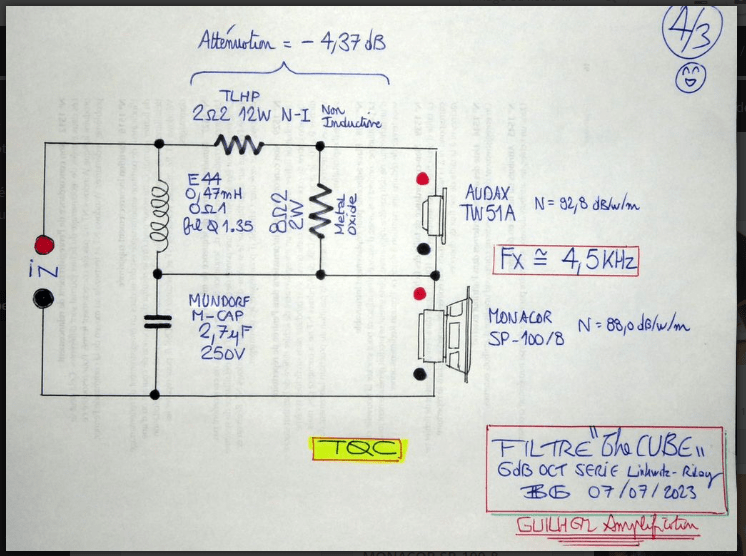 4/3
Atténuation = - 4,37 dB
TLHP
2Ω2 12W N-I Non Inductive
E44
0,47mH
0Ω1
fil Ø 1.35
8Ω2
2W
Metal
Oxide
AUDAX
TW51A
N= 92,8 dB/w/m
Fx ≅ 4,5KHz
iN
MUNDORF
M-CAP
2,7µF
250V
MONACOR
SP-100/8
N= 88,0 dB/w/m
TQC
FILTRE "The CUBE"
6dB OCT SERIE Linkwitz-Riley
BG 07/07/2023
GUILHEM Amplification